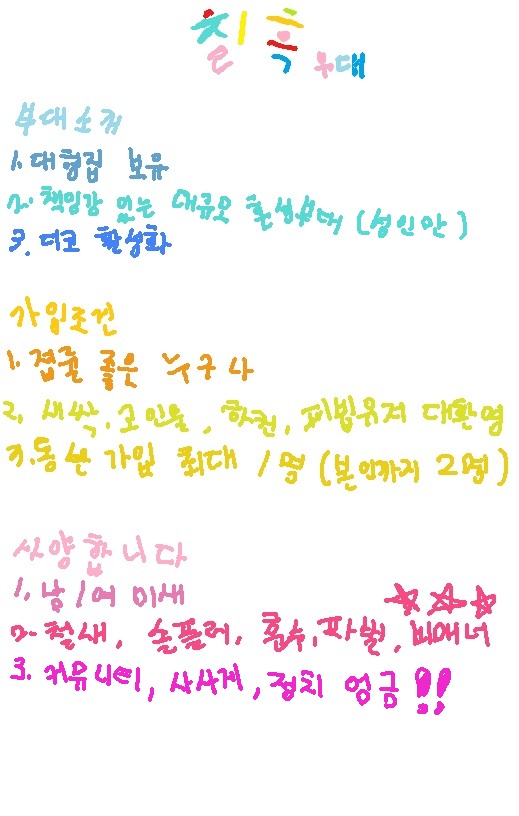 칠흑부대
부대소개
1. 대형집 보유
2. 책임감 있는 대규모 활성부대 (성인만)
3. 디코 활성화
가입조건
1. 접률 좋은 누구나
2. 새싹, 고인물, 하컨, 피빕유저 대환영
3. 동반 가입 최대 1명 (본인까지 2명)
사양합니다
1. 남/여 미새
2. 철새, 솔플러, 훈수, 파벌, 비매너
3. 커뮤니티, 사사게, 정치 언금!!